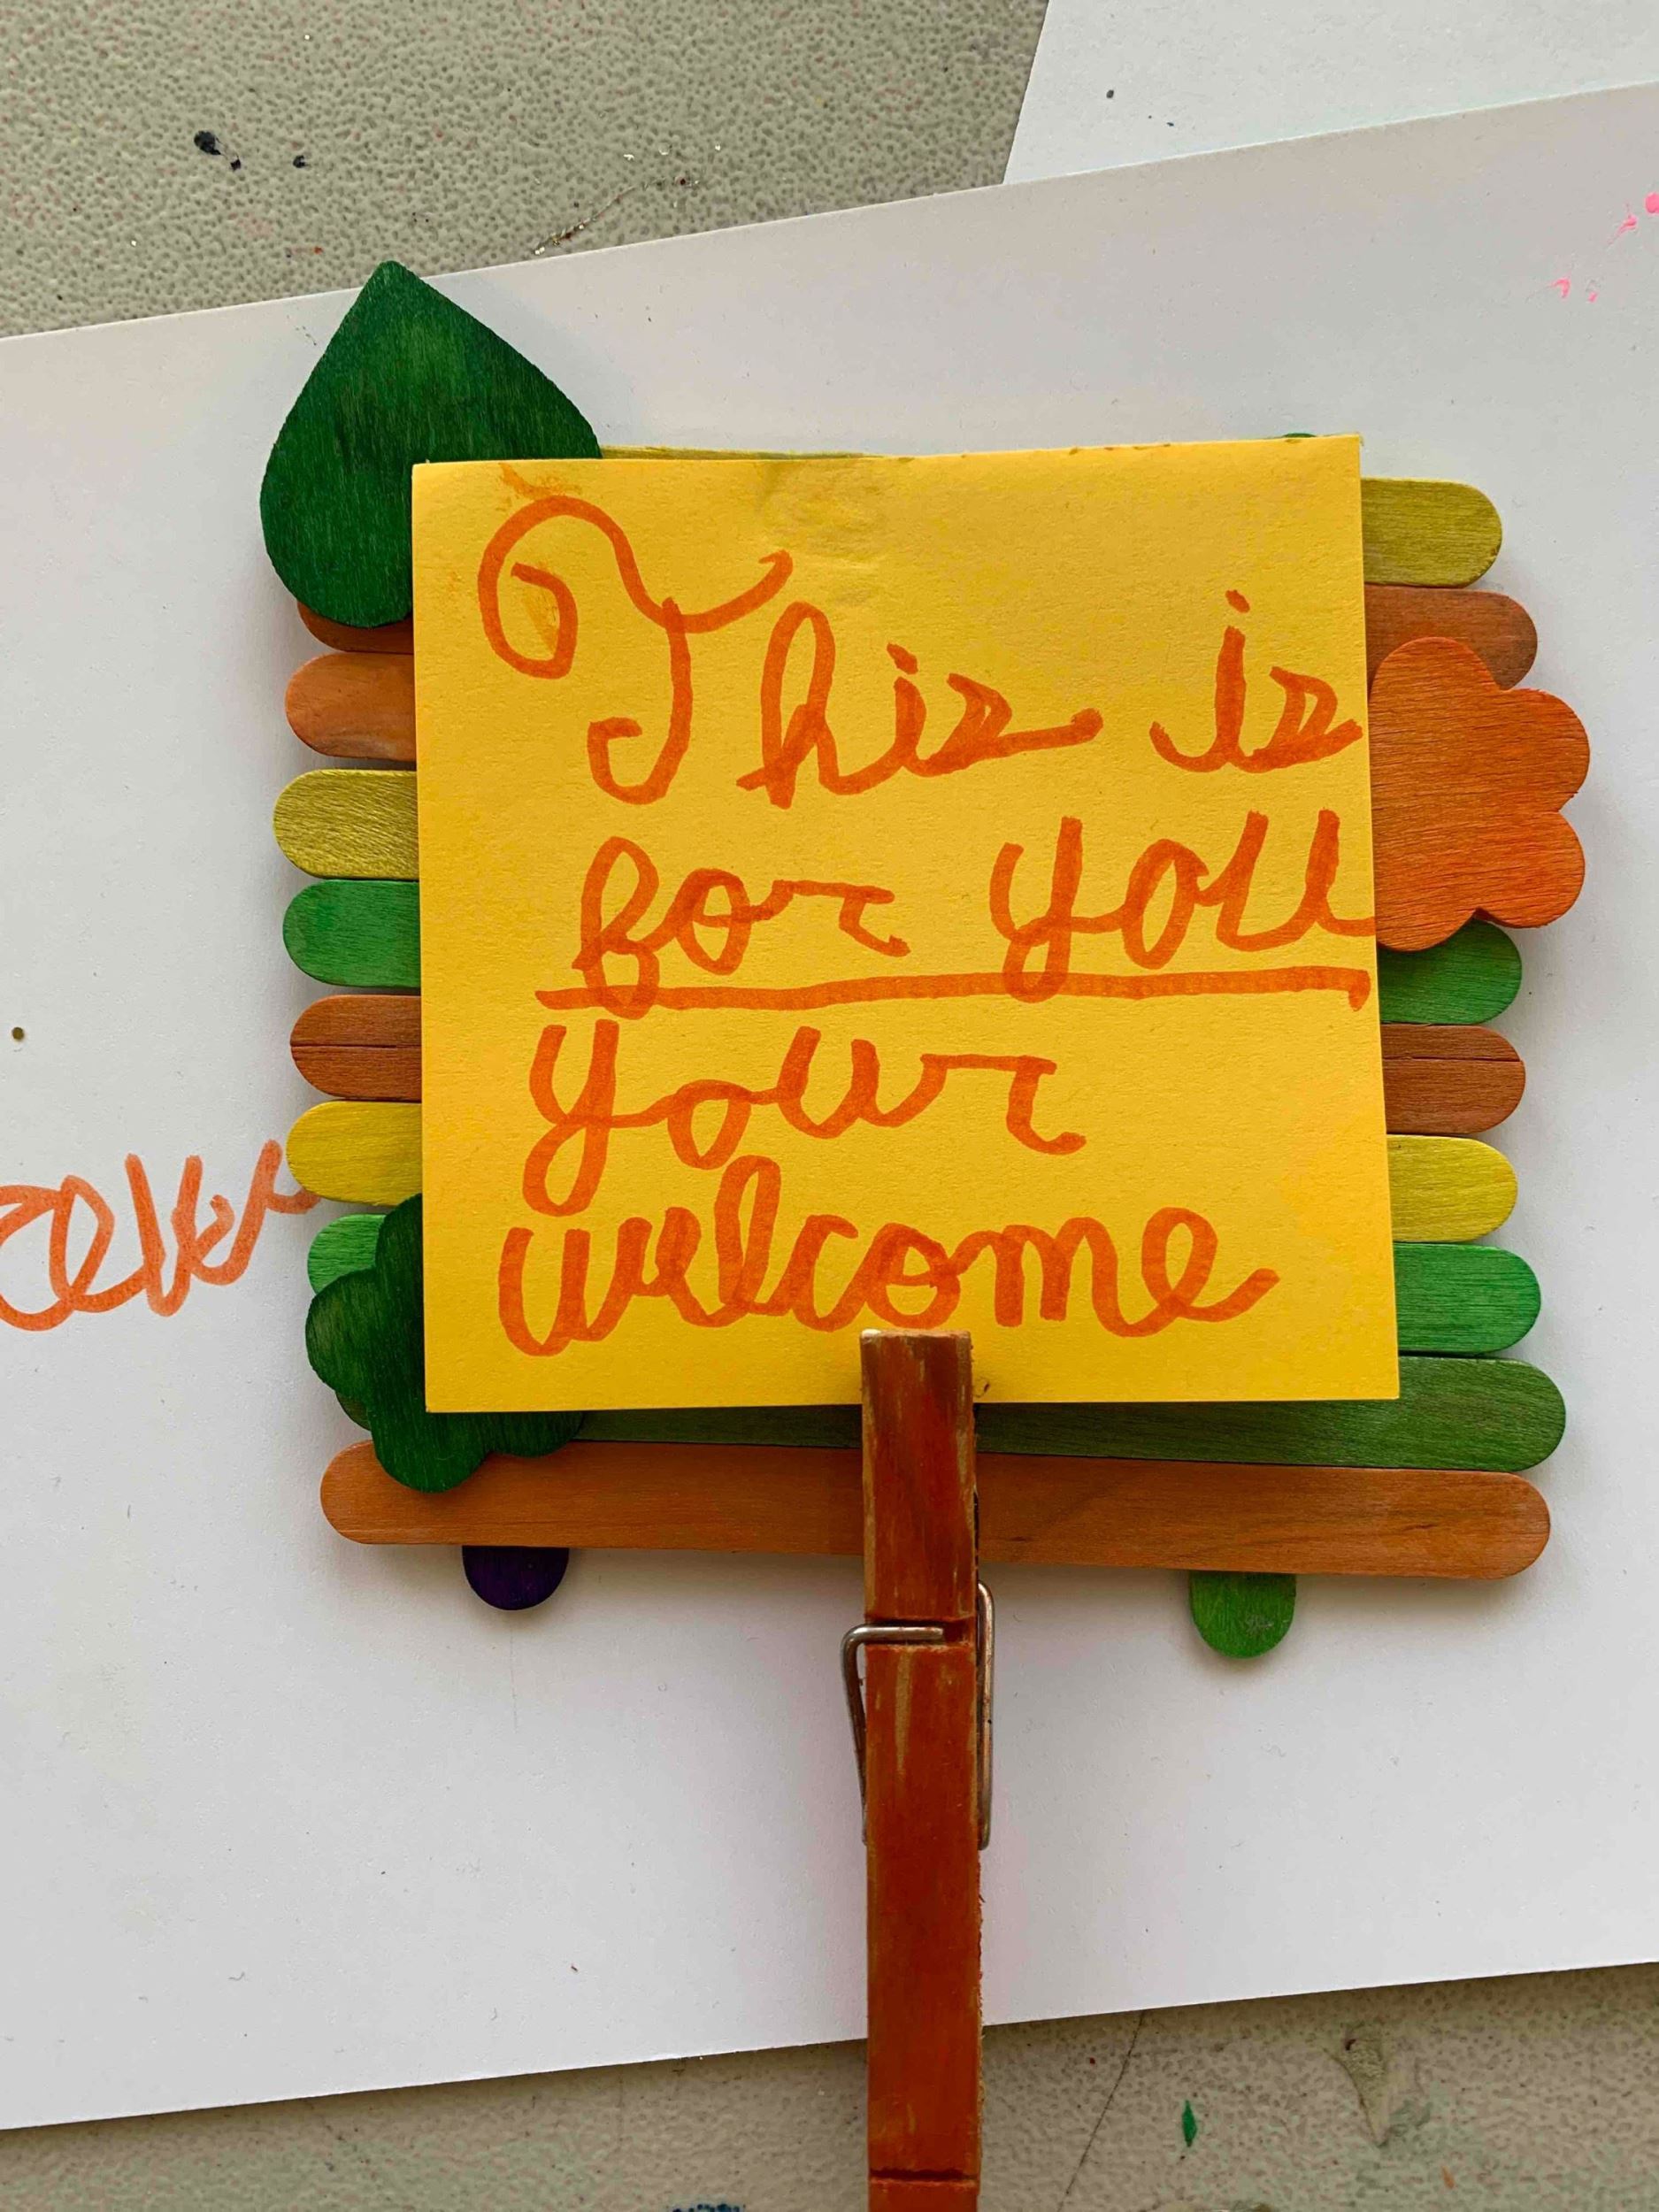 This is
for you
your
welcome